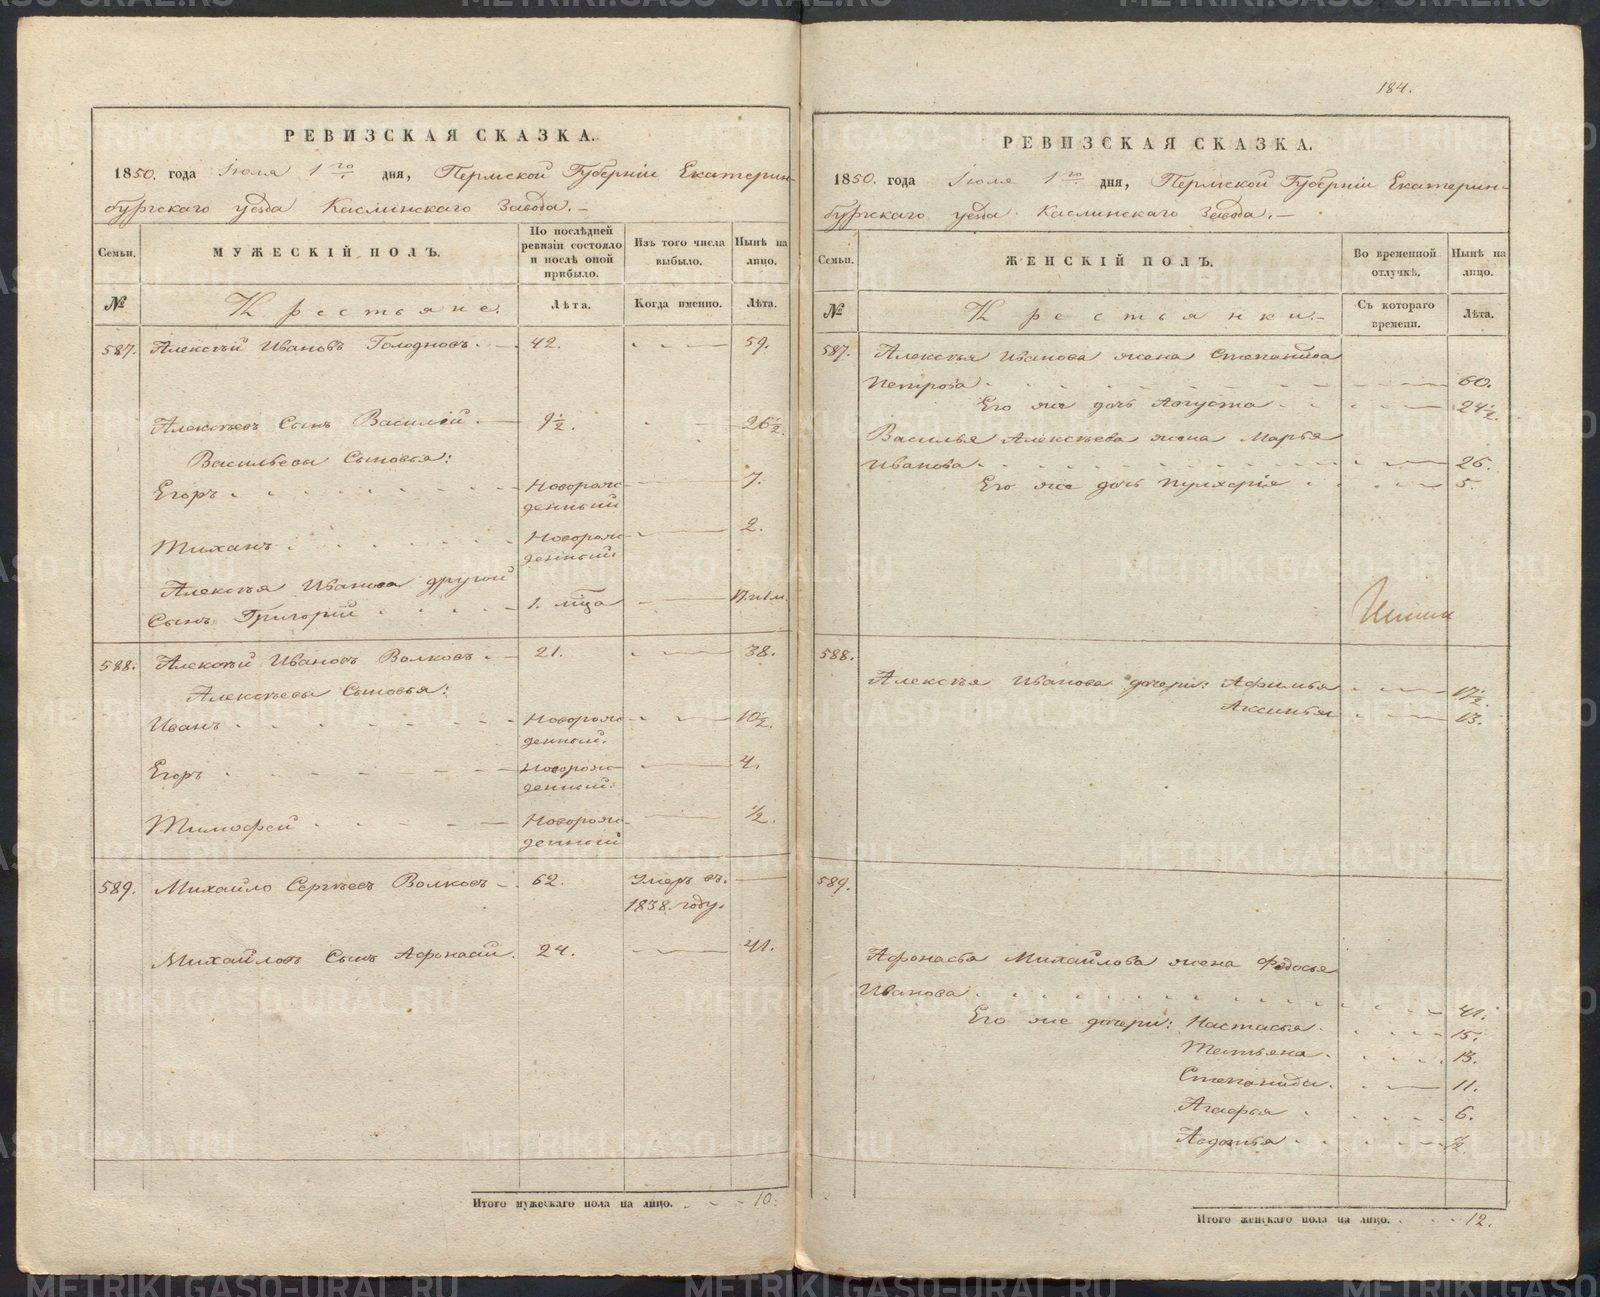 РЕВИЗСКАЯ СКАЗКА.
1850. года Іюля 1го дня, Пермской Губерніи Екатерин-
бургскаго уезда Каслинскаго Завода.-
Семьи.
МУЖЕСКІЙ ПОЛЪ.
По послѣдней ревизіи состояло и послѣ оной прибыло.
Изъ того числа выбыло.
Нынѣ на лицо.
№
Крестьяне.
Лѣта.
Когда именно.
Лѣта.
587. Алексѣй Ивановъ Голодновъ. 42. 59.
Алексѣевъ Сынъ Василій 9½. 26½.
Васильевы Сыновья:
Егоръ Новорож- 7.
денный
Новорож- 2.
денный.
Алексѣя Иванова другой
Сынъ Григорій 1. мца
588. Алексѣй Ивановъ Волковъ. 21. 38.
Алексѣевы Сыновья:
Иванъ Новорож- 10½.
денный.
Егоръ Новорож- 4.
денный.
Тимофей Новорож- ½.
денный
589. Михайло Сергѣевъ Волковъ 62. Умеръ въ
1838. году.
Михайловъ Сынъ Афонасій. 24. 41.
Итого мужескаго пола на лицо. 10.
184.
РЕВИЗСКАЯ СКАЗКА.
1850. года Іюля 1го дня, Пермской Губерніи Екатерин-
бургскаго уезда Каслинскаго Завода.-
Семьи.
ЖЕНСКІЙ ПОЛЪ.
Во временной отлучкѣ.
Нынѣ на лицо.
№
Крестьянки.
Съ котораго времени.
Лѣта.
587. Алексѣя Иванова жена Степанида
Петрова 60.
Его же дочь Августа 24½.
Василья Алексѣева жена Марья
Иванова 26.
Его же дочь Пулхерія 5.
588.
Алексѣя Иванова дочери: Афимья 17½.
Аксинья 13.
589.
Афонасья Михайлова жена Федосья
Иванова 41.
Его же дочери: Настасья 15.
Татьяна 13.
Степанида 11.
Агафья 6.
Авдотья ½.
Итого женскаго пола на лицо. 12.
METRIKI.GASO-URAL.RU